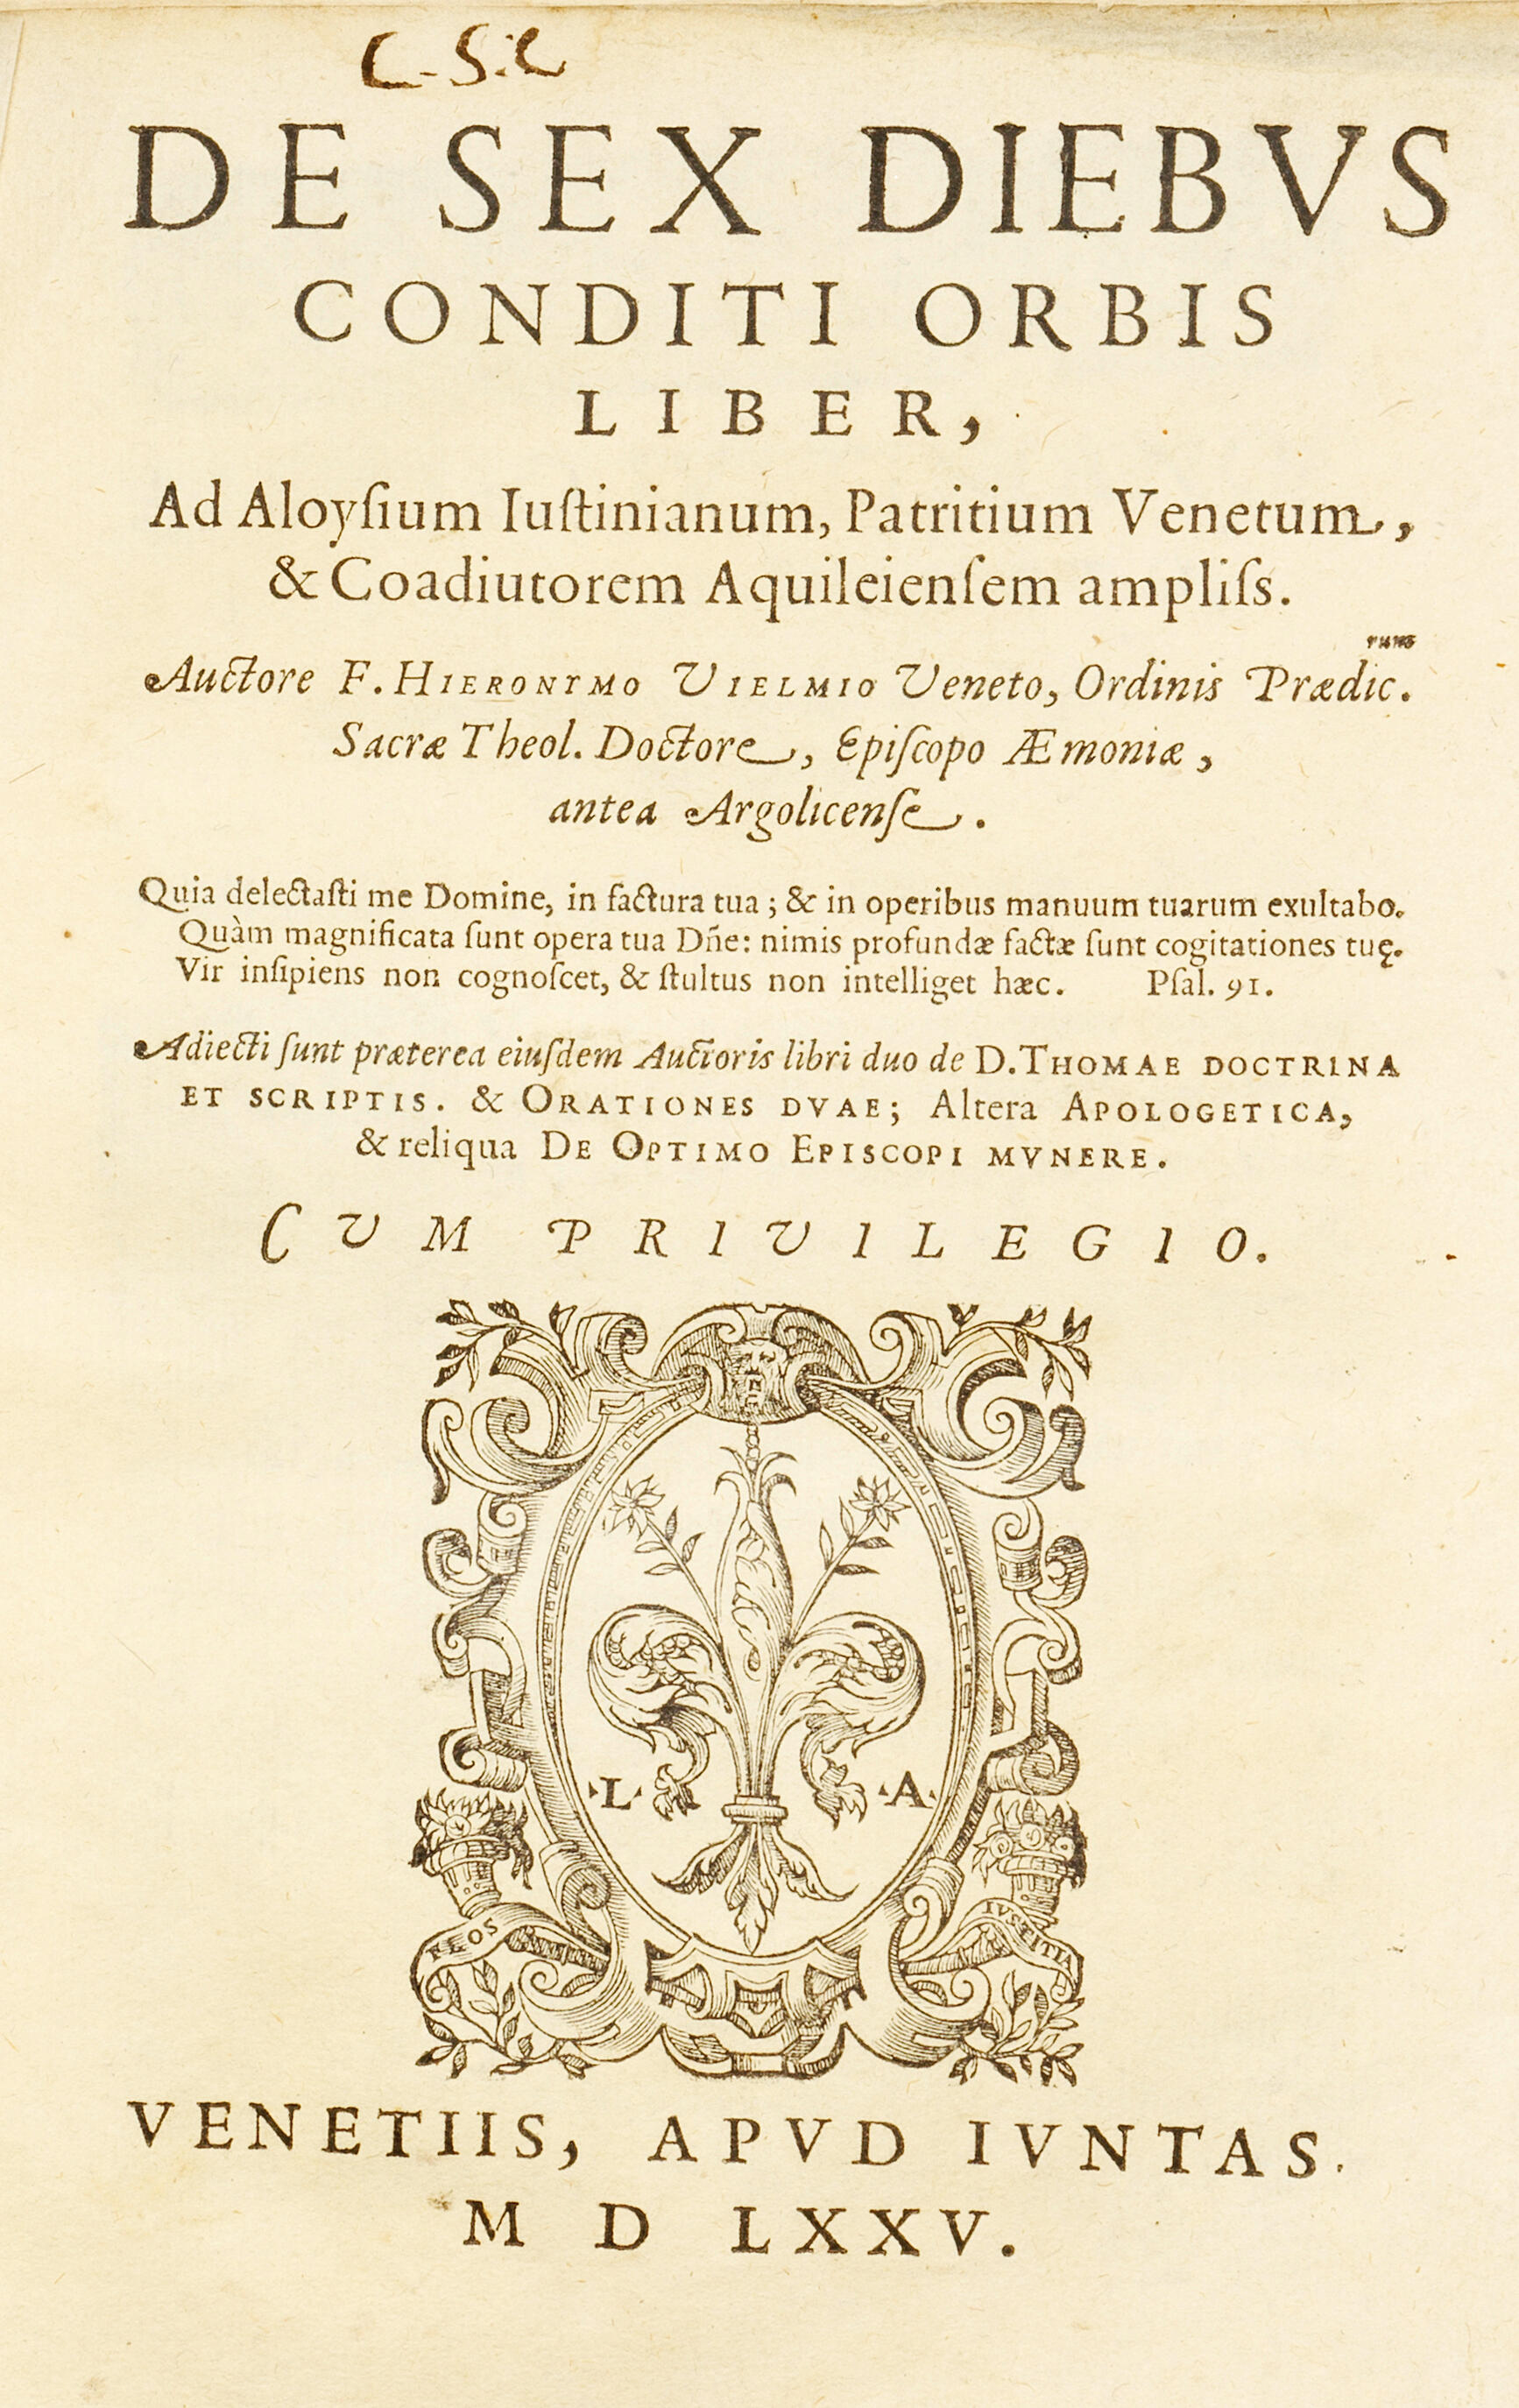 C-S:C
DE SEX DIEBVS
CONDITI ORBIS
LIBER,
Ad Aloyſium Iuſtinianum, Patritium Venetum,
& Coadiutorem Aquileienſem ampliſs.
Auctore F. HIERONYMO VIELMIO Veneto, Ordinis Prædic.
Sacræ Theol. Doctore, Epiſcopo Æmoniæ,
antea Argolicenſe.
Quia delectaſti me Domine, in factura tua; & in operibus manuum tuarum exultabo.
Quàm magnificata ſunt opera tua Dñe: nimis profundæ factæ ſunt cogitationes tuę.
Vir inſipiens non cognoſcet, & ſtultus non intelliget hæc. Pſal. 91.
Adiecti ſunt præterea eiuſdem Auctoris libri duo de D. THOMAE DOCTRINA
ET SCRIPTIS. & ORATIONES DVAE; Altera APOLOGETICA,
& reliqua DE OPTIMO EPISCOPI MVNERE.
CVM PRIVILEGIO.
·L· ·A·
FLOS IVSTITIA
VENETIIS, APVD IVNTAS.
M D LXXV.